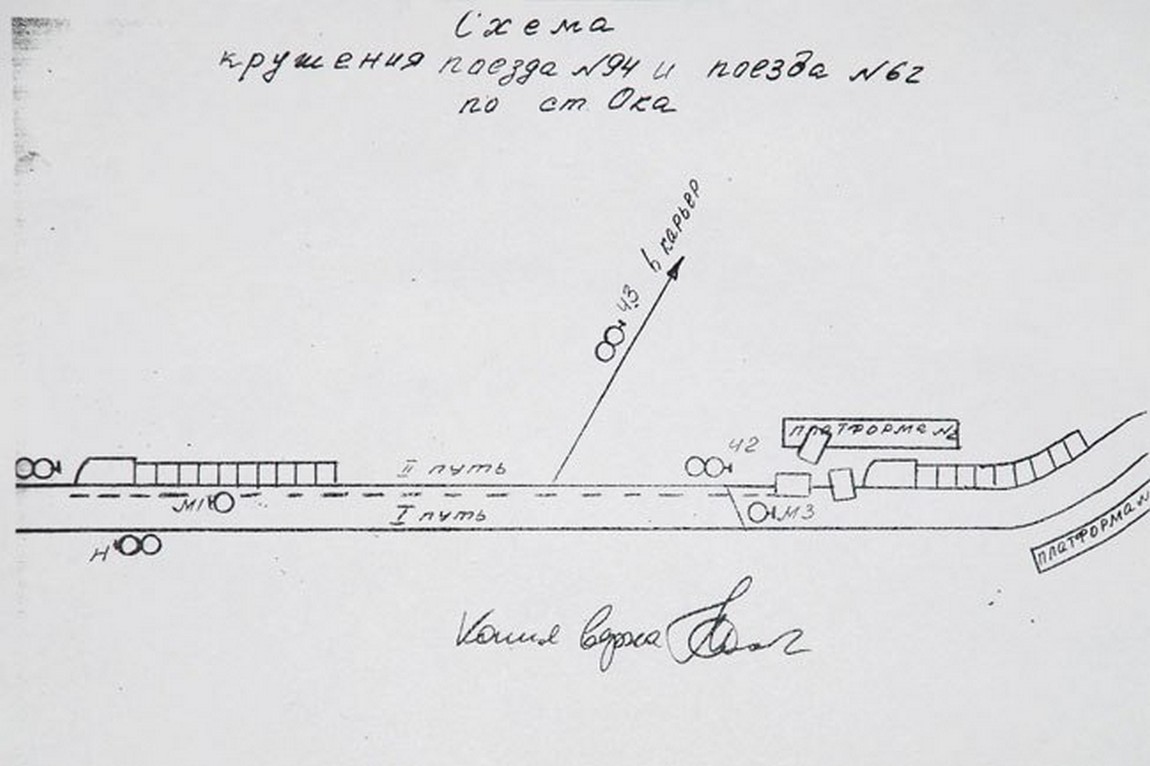 Схема
крушения поезда №94 и поезда №62
по ст. Ока
в карьер
Ч3
платформа №2
Ч2
II путь
М1
I путь
М3
Н
платформа №
Копия верна